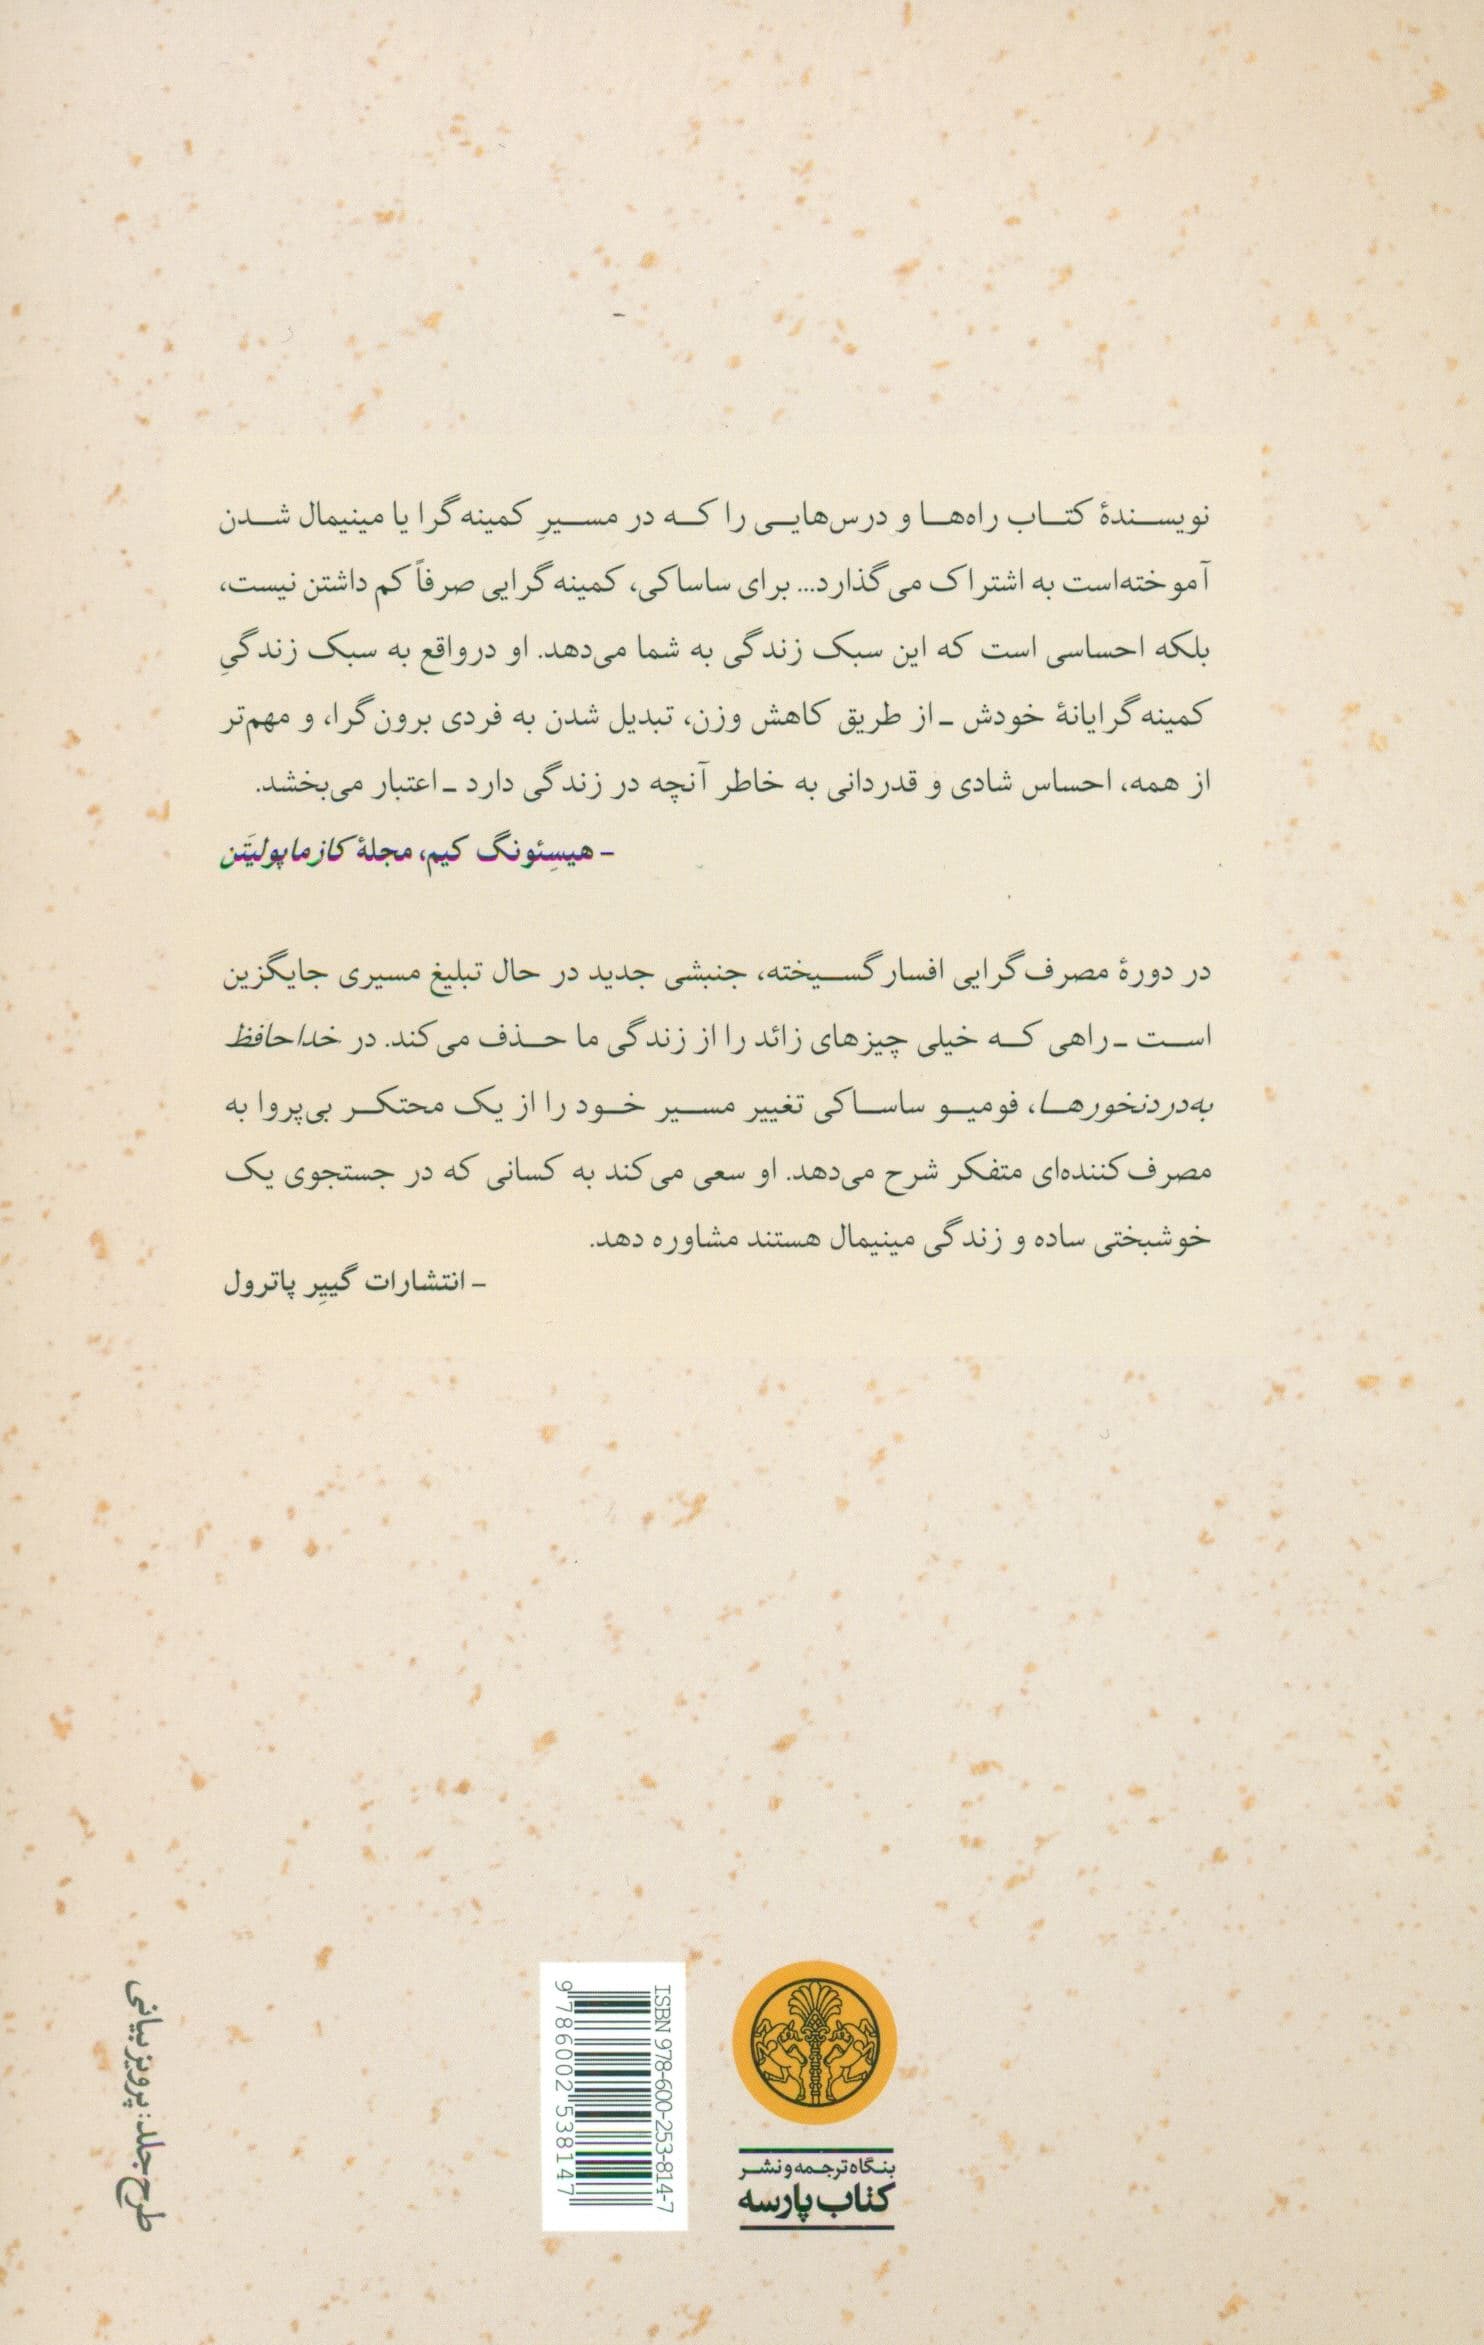 نویسندهٔ کتاب راه‌ها و درس‌هایی را که در مسیرِ کمینه‌گرا یا مینیمال شدن
آموخته‌است به اشتراک می‌گذارد... برای ساساکی، کمینه‌گرایی صرفاً کم داشتن نیست،
بلکه احساسی است که این سبک زندگی به شما می‌دهد. او درواقع به سبک زندگیِ
کمینه‌گرایانهٔ خودش ـ از طریق کاهش وزن، تبدیل شدن به فردی برون‌گرا، و مهم‌تر
از همه، احساس شادی و قدردانی به خاطر آنچه در زندگی دارد ـ اعتبار می‌بخشد.
ـ هیسِئونگ کیم، مجلهٔ کازماپولیتَن
در دورهٔ مصرف‌گرایی افسارگسیخته، جنبشی جدید در حال تبلیغ مسیری جایگزین
است ـ راهی که خیلی چیزهای زائد را از زندگی ما حذف می‌کند. در خداحافظ
به‌دردنخورها، فومیو ساساکی تغییر مسیر خود را از یک محتکر بی‌پروا به
مصرف‌کننده‌ای متفکر شرح می‌دهد. او سعی می‌کند به کسانی که در جستجوی یک
خوشبختی ساده و زندگی مینیمال هستند مشاوره دهد.
ـ انتشارات گییِر پاترول
بنگاه ترجمه و نشر
کتاب پارسه
ISBN 978-600-253-814-7
9 786002 538147
طرح جلد: پرویز بیانی